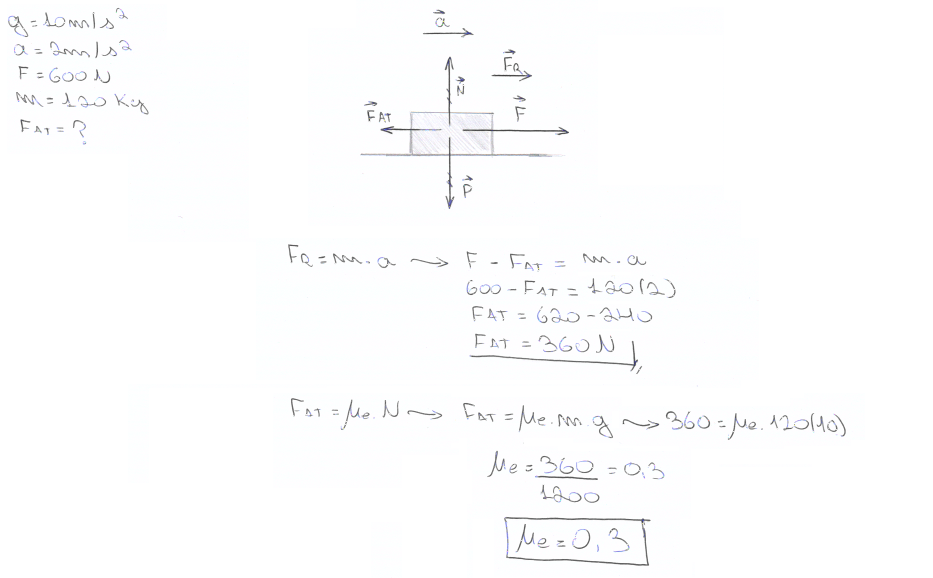 g = 10 m/s²
a = 2 m/s²
F = 600 N
m = 120 Kg
FAT = ?
a
FR
N
FAT
F
P
FR = m . a → F - FAT = m . a
600 - FAT = 120 (2)
FAT = 620 - 240
FAT = 360 N
FAT = μe . N → FAT = μe . m . g → 360 = μe . 120 (10)
μe = 360/1200 = 0,3
μe = 0,3